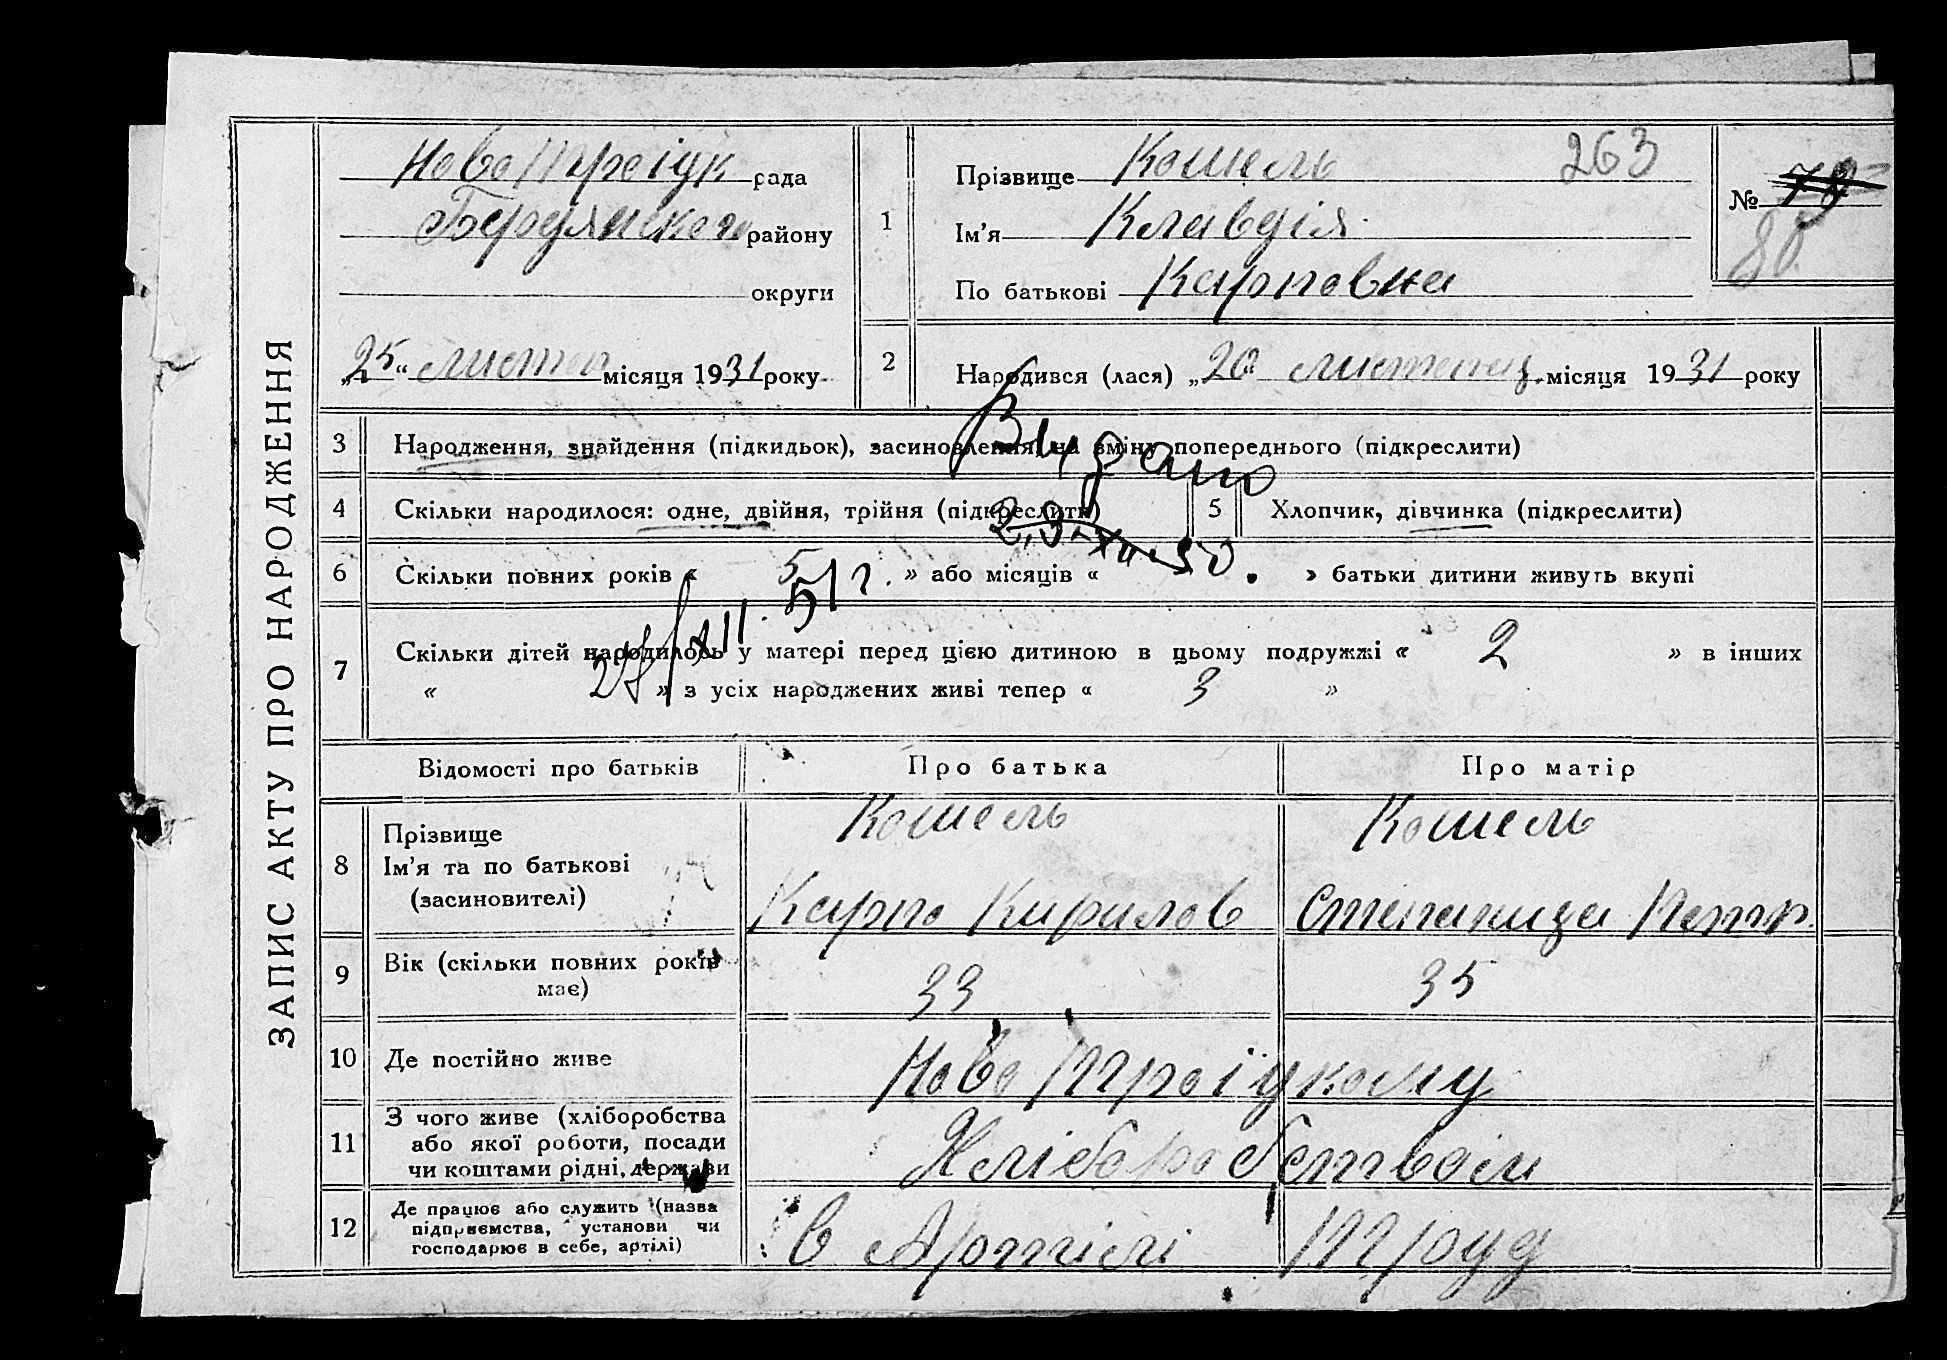 ЗАПИС АКТУ ПРО НАРОДЖЕННЯ
Ново Троіцк рада
Бердянского району
округи
„25“ листоп місяця 1931 року
1
Прізвище Кошель 263
Ім'я Клавдія
По батькові Карповна
№ 79
80
2
Народився (лася) „20“ листопад. місяця 1931 року
3 Народження, знайдення (підкидьок), засиновлення, на зміну попереднього (підкреслити)
Видано
4 Скільки народилося: одне, двійня, трійня (підкреслити)
5 Хлопчик, дівчинка (підкреслити)
6 Скільки повних років « 5 » або місяців « » батьки дитини живуть вкупі
27/XII. 51 г.
7 Скільки дітей народилось у матері перед цією дитиною в цьому подружжі « 2 » в інших
« » з усіх народжених живі тепер « 3 »
Відомості про батьків Про батька Про матір
8 Прізвище
Ім'я та по батькові
(засиновителі)
Кошель Кошель
Карпо Кирилов Степанида Петр.
9 Вік (скільки повних років
має)
33 35
10 Де постійно живе Ново Троіцкому
11 З чого живе (хліборобства
або якої роботи, посади
чи коштами рідні, держави
Хліборобством
12 Де працює або служить (назва
підприємства, установи чи
господарює в себе, артілі)
в Артілі Труд